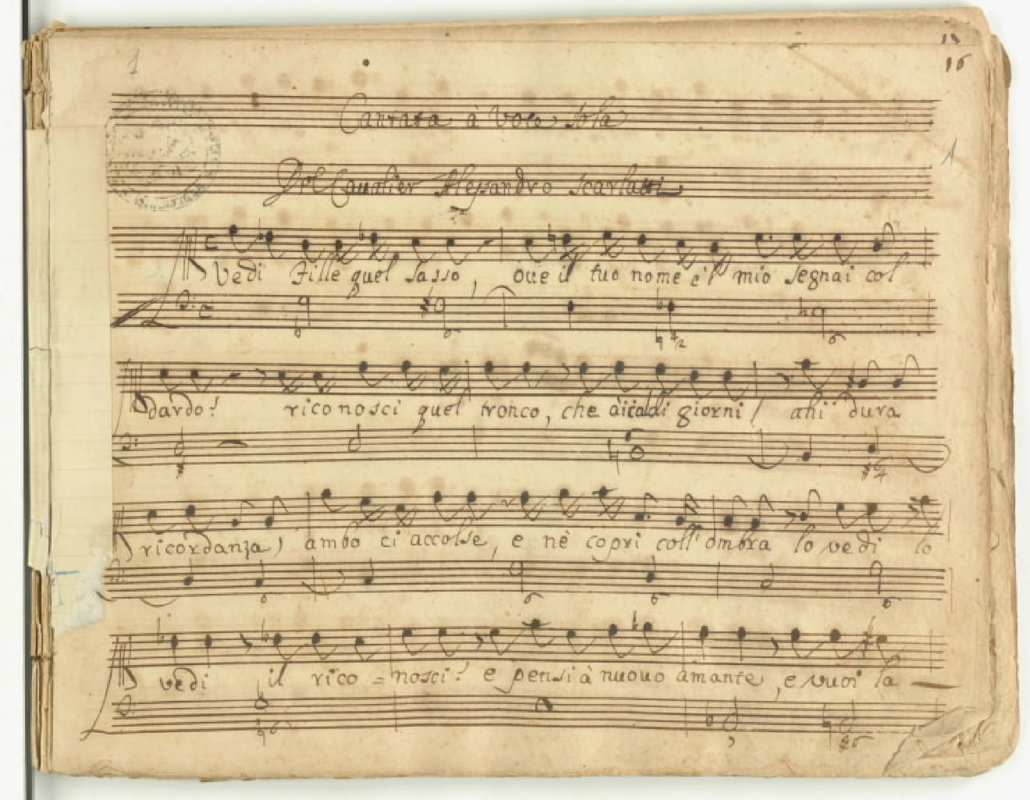 1
13
16
Cantata à Voce sola
1
Del Cavalier Alessandro Scarlatti
Vedi Fille quel sasso, oue il tuo nome e'l mio segnai col
dardo? riconosci quel tronco, che à i caldi giorni / ahi dura
ricordanza) ambo ci accolse, e nè coprì coll'ombra lo vedi lo
vedi il rico = nosci? e pensi à nuouo amante, e vuoi la